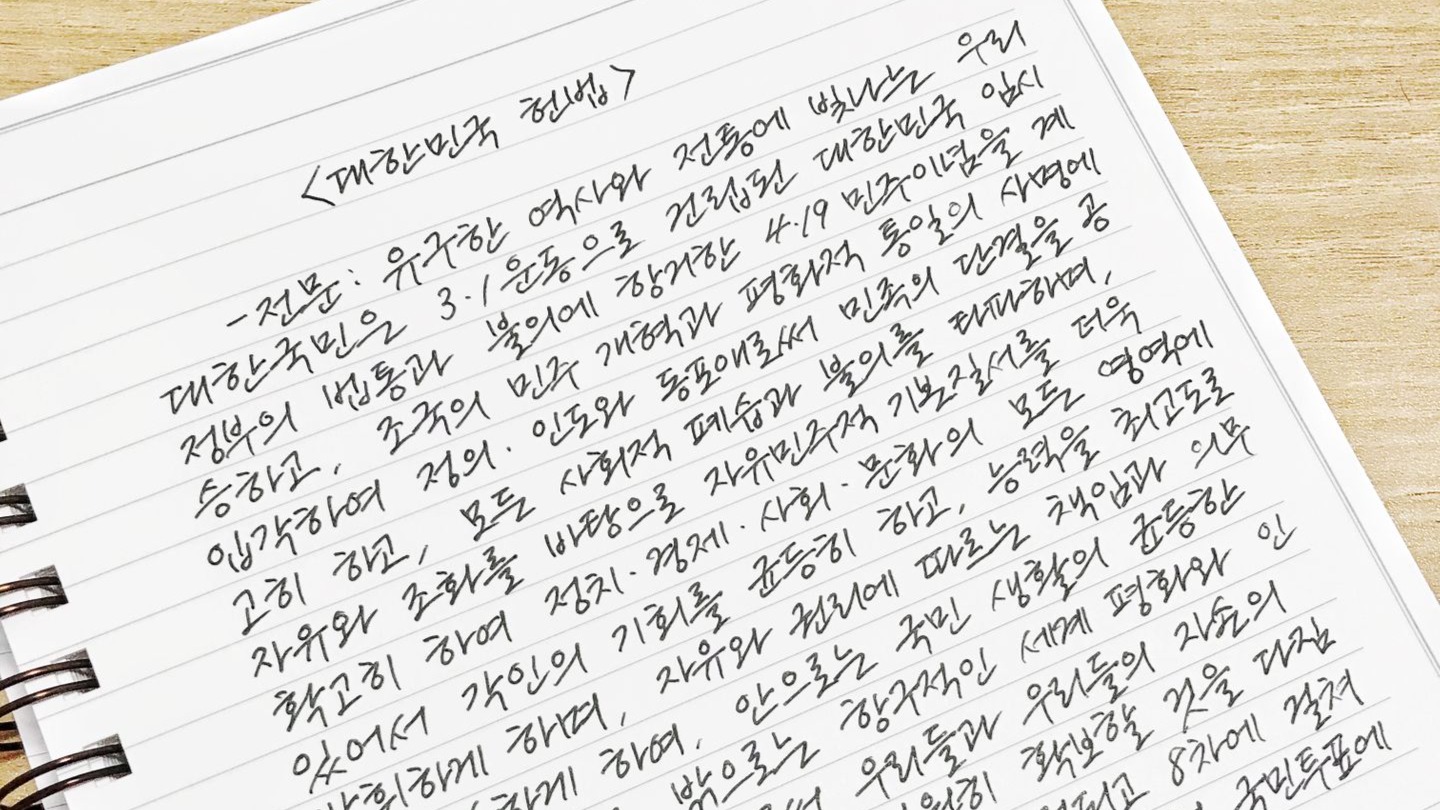 <대한민국 헌법>
-전문: 유구한 역사와 전통에 빛나는 우리
대한국민은 3.1운동으로 건립된 대한민국 임시
정부의 법통과 불의에 항거한 4.19 민주이념을 계
승하고, 조국의 민주 개혁과 평화적 통일의 사명에
입각하여 정의·인도와 동포애로써 민족의 단결을 공
고히 하고, 모든 사회적 폐습과 불의를 타파하며,
자유와 조화를 바탕으로 자유민주적 기본질서를 더욱
확고히 하여 정치·경제·사회·문화의 모든 영역에
있어서 각인의 기회를 균등히 하고, 능력을 최고도로
발휘하게 하며, 자유와 권리에 따르는 책임과 의무
하게 하여, 안으로는 국민 생활의 균등한
밖으로는 항구적인 세계 평화와 인
우리들과 우리들의 자손의
확보할 것을 다짐
8차에 걸쳐
국민투표에